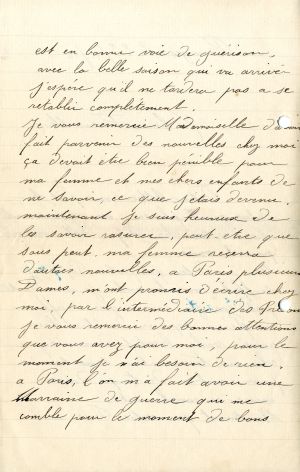 est en bonne voie de guérison,
avec la belle saison qui va arriver
j'espère qu'il ne tardera pas a se
retablir complètement.
Je vous remercie Mademoiselle d'avoir
fait parvenir des nouvelles chez moi
ça devait etre bien pénible pour
ma femme et mes chers enfants de
ne savoir, ce que j'etais devenu.
maintenant je suis heureux de
les savoir rassurer, peut-etre que
sous peut, ma femme recevra
d'autres nouvelles, a Paris plusieurs
Dames, m'ont promis d'écrire chez
moi, par l'intermédiaire des
Je vous remercie des bonnes attentions
que vous avez pour moi, pour le
moment je n'ai besoin de rien.
a Paris, l'on m'a fait avoir une
Marraine de guerre qui me
comble pour le moment de bons